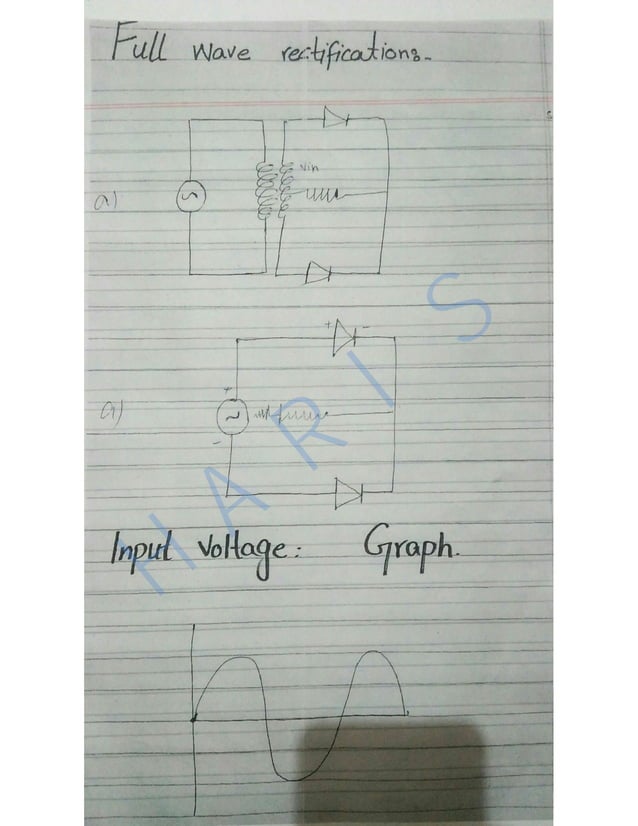 Full wave rectifications.
a)
Vin
a)
+ -
+
-
HARIS
Input voltage: Graph.